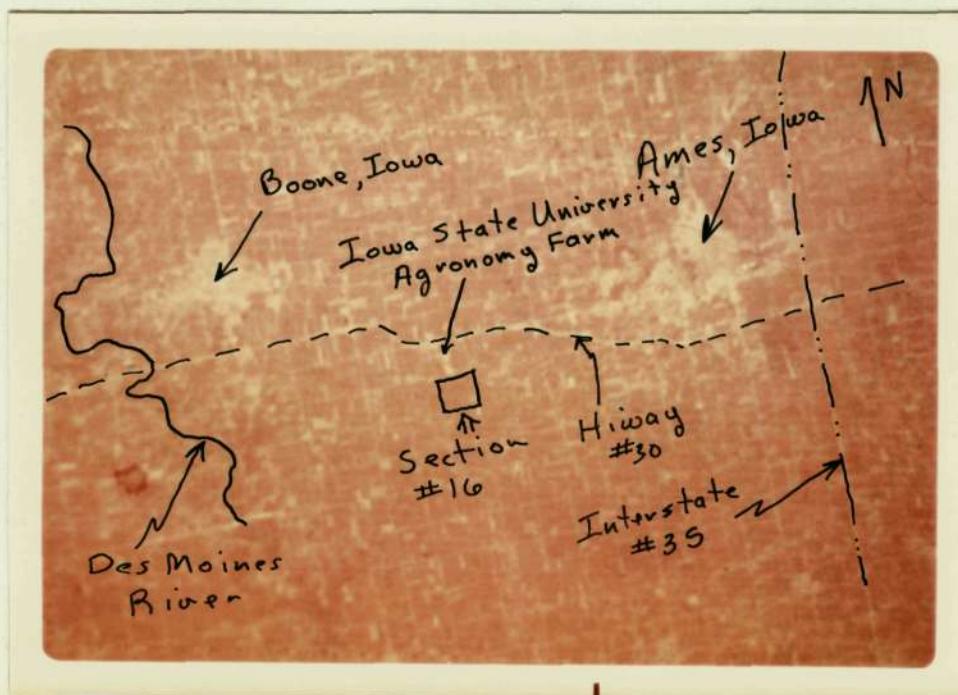 N
Ames, Iowa
Boone, Iowa
Iowa State University
Agronomy Farm
Section
#16
Hiway
#30
Interstate
#35
Des Moines
River